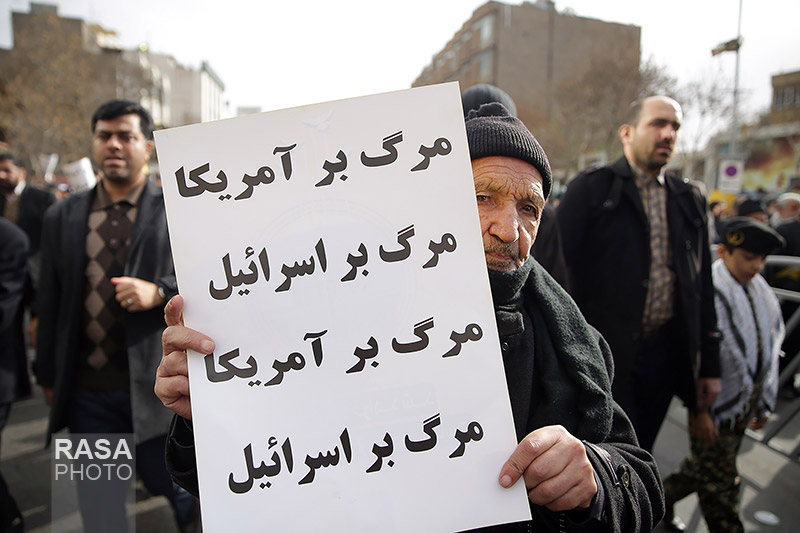 مرگ بر آمریکا
مرگ بر اسرائیل
مرگ بر آمریکا
مرگ بر اسرائیل
RASA
PHOTO